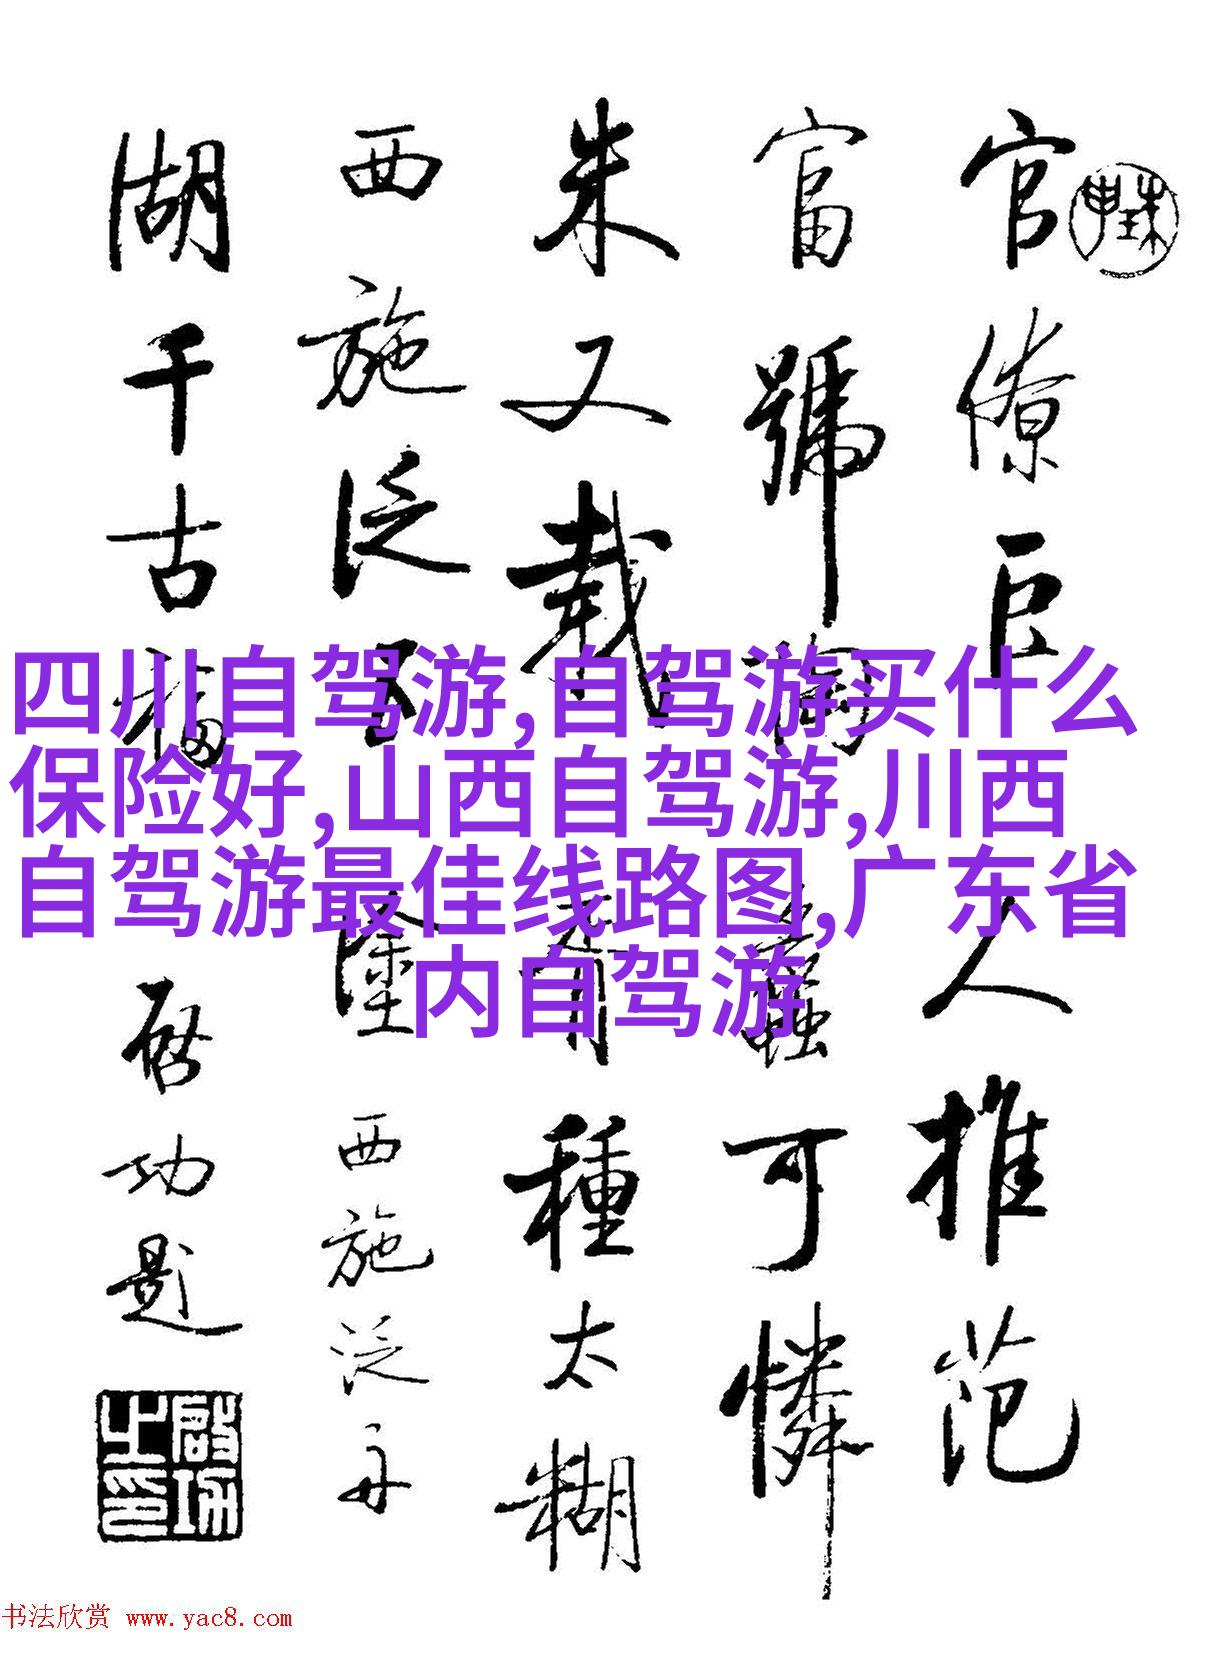 官僚巨人推范
富號陶蠡可憐
朱又載胥種太糊
西施泛五塗 西施泛舟
湖千古福 启功题
四川自驾游,自驾游买什么
保险好,山西自驾游,川西
自驾游最佳线路图,广东省
内自驾游
书法欣赏 www.yac8.com